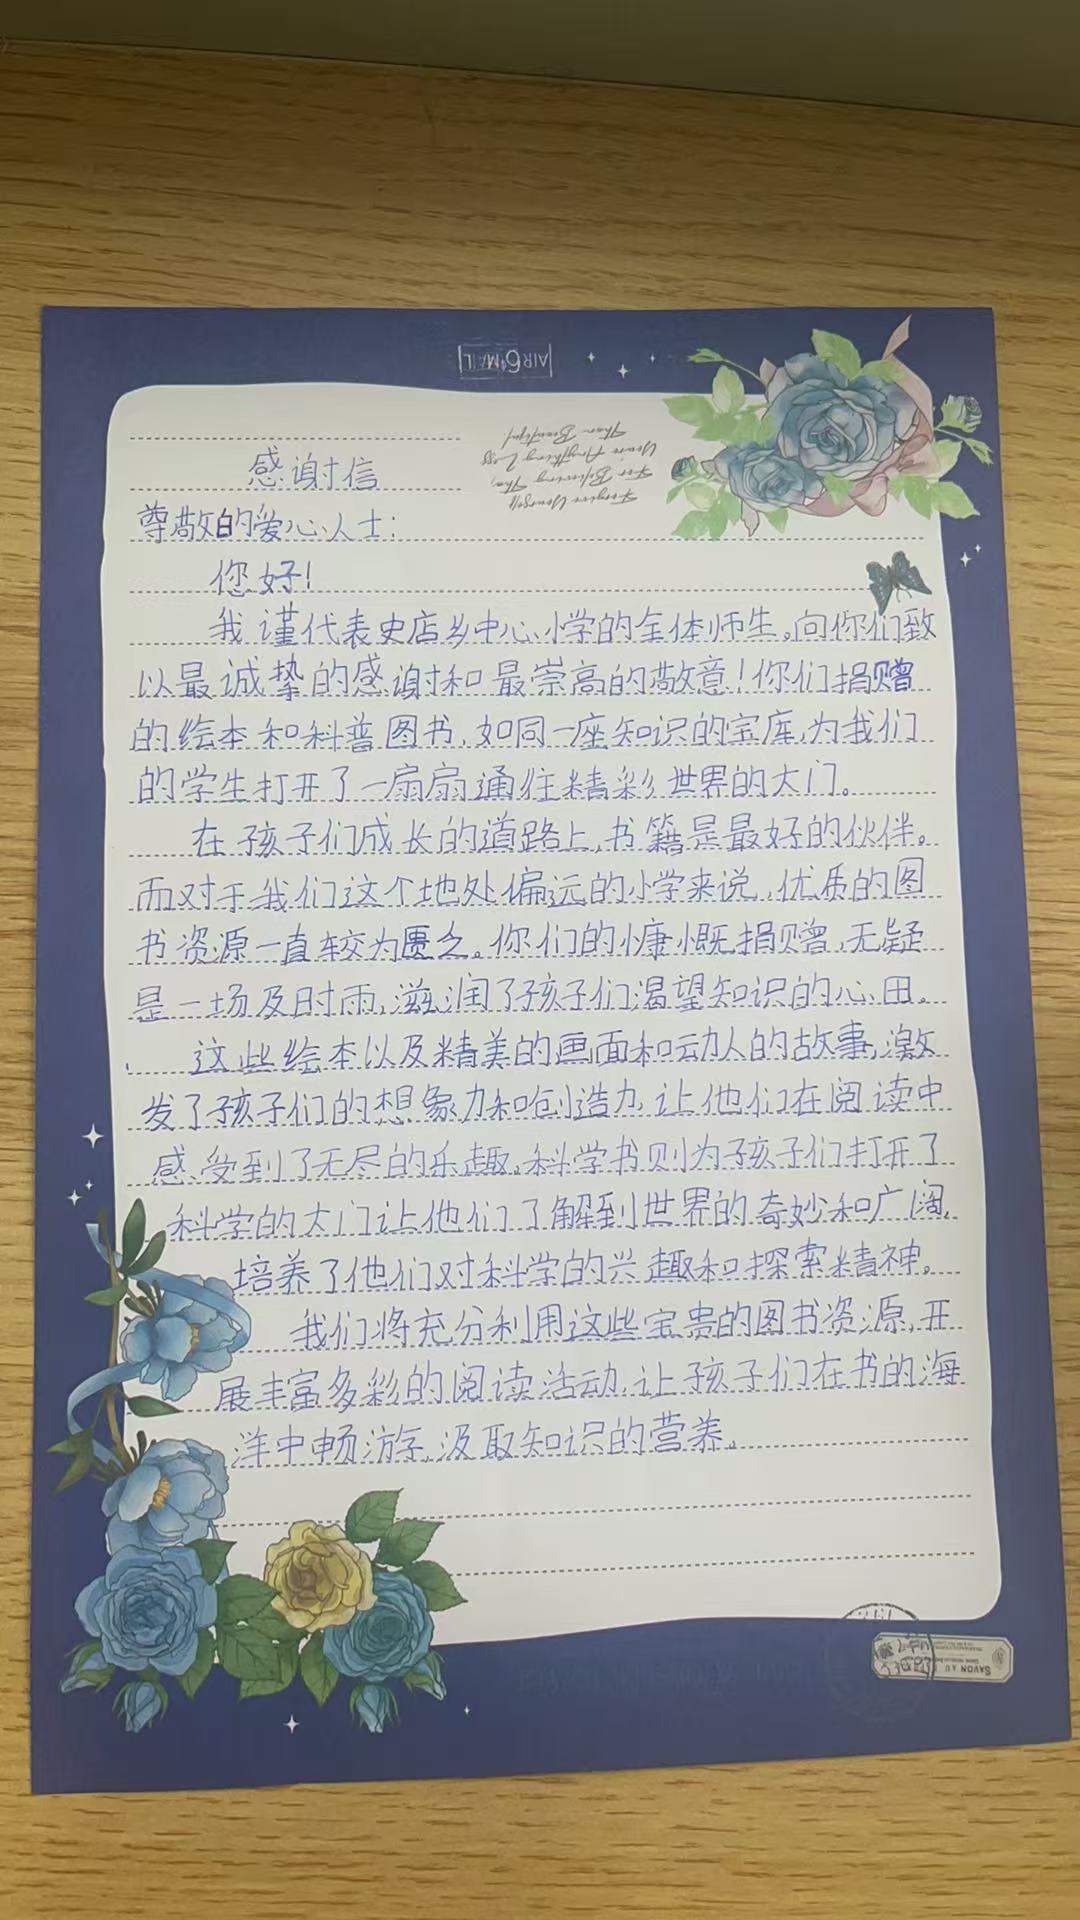 AIR MAIL
6
Forgive Yourself
For Believing That
You're Anything Less
Than Beautiful
感谢信
尊敬的爱心人士：
您好！
我谨代表史店乡中心小学的全体师生。向你们致
以最诚挚的感谢和最崇高的敬意！你们捐赠
的绘本和科普图书，如同一座知识的宝库，为我们
的学生打开了一扇扇通往精彩世界的大门。
在孩子们成长的道路上，书籍是最好的伙伴。
而对于我们这个地处偏远的小学来说，优质的图
书资源一直较为匮乏。你们的慷慨捐赠，无疑
是一场及时雨，滋润了孩子们渴望知识的心田。
这些绘本以及精美的画面和动人的故事，激
发了孩子们的想象力和创造力，让他们在阅读中
感受到了无尽的乐趣，科学书则为孩子们打开了
科学的大门让他们了解到世界的奇妙和广阔，
培养了他们对科学的兴趣和探索精神。
我们将充分利用这些宝贵的图书资源，开
展丰富多彩的阅读活动，让孩子们在书的海
洋中畅游，汲取知识的营养。
SAVON